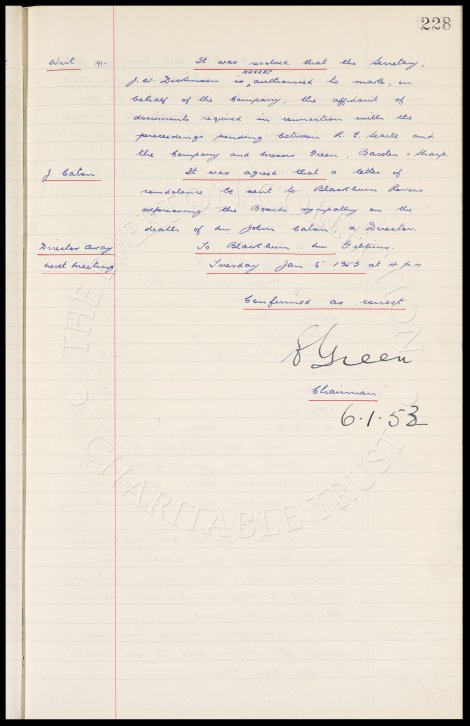 228
Writ 191. It was resolved that the Secretary,
J. W. Dickinson is HEREBY authorised to make, on
behalf of the Company, the affidavit of
documents required in connection with the
proceedings pending between R. E. Searle and
the Company and Messrs Green, Baxter & Sharp.
J. Caton It was agreed that a letter of
condolence be sent to Blackburn Rovers
expressing the Boards sympathy on the
death of Mr John Caton, a Director.
Director Away To Blackburn :- Mr Gibbins.
Next Meeting Tuesday Jan 6th 1953 at 4 p.m
Confirmed as correct
S Green
Chairman.
6.1.53
THE EVERTON COLLECTION
CHARITABLE TRUST